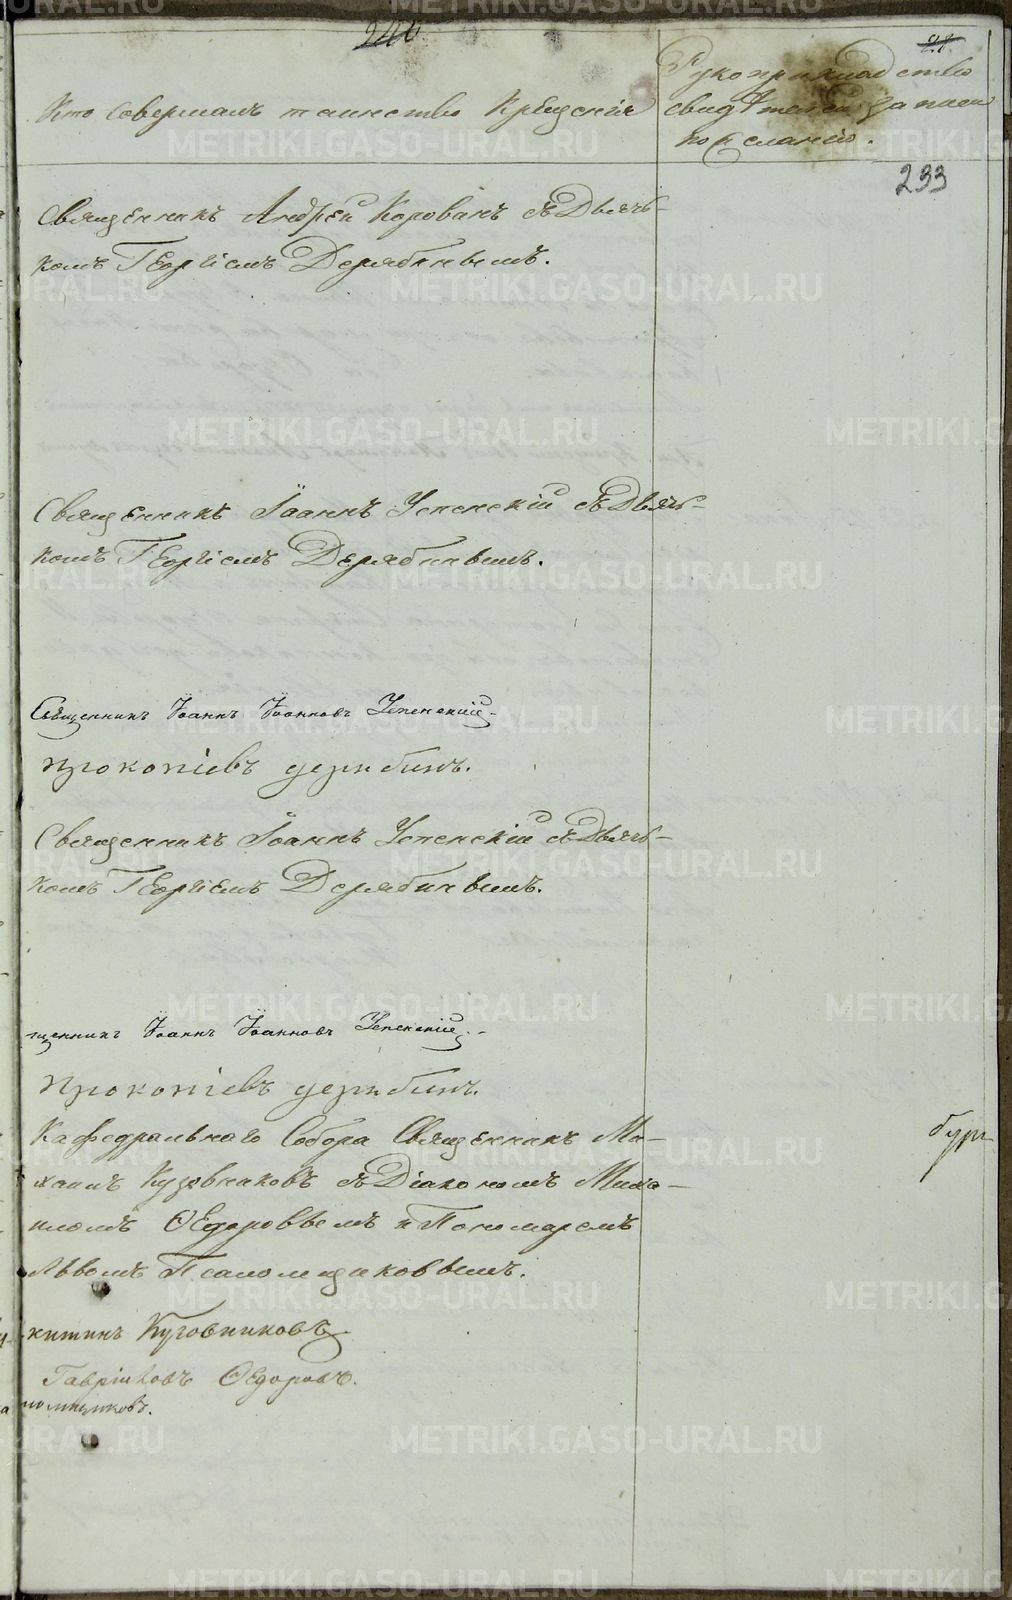 240
28
Кто совершалъ таинство крещенія
Рукоприкладство
свидѣтелей записи
по желанію.
233
Священникъ Андрей Корованъ съ Дьяч-
комъ Георгіемъ Дерябинымъ.
Священникъ Іоаннъ Успенскій съ Дьяч-
комъ Георгіемъ Дерябинымъ.
Священникъ Іоаннъ Іоанновъ Успенскій
Прокопіевъ Дерябинъ.
Священникъ Іоаннъ Успенскій съ Дьяч-
комъ Георгіемъ Дерябинымъ.
щенникъ Іоаннъ Іоанновъ Успенскій.
Прокопіевъ Дерябинъ.
Кафедральнаго Собора Священникъ Ми-
хаилъ Кузовниковъ съ Діакономъ Миха-
иломъ Ѳедоровымъ и Пономаремъ
Львомъ Псаломщиковымъ.
бург
китинъ Кузовниковъ
Гавріиловъ Ѳедоровъ.
ломщиковъ.
METRIKI.GASO-URAL.RU